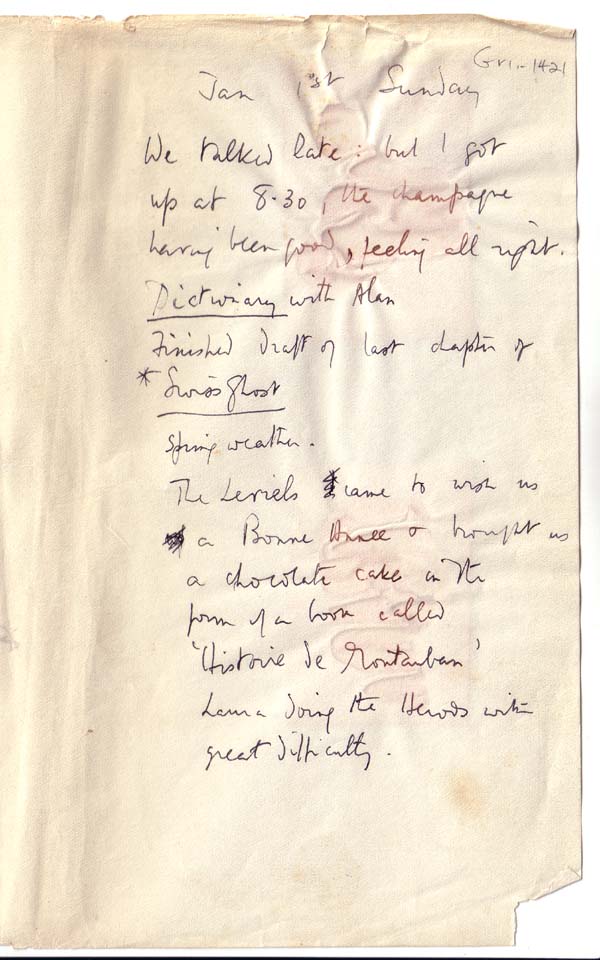 Gri-1421
Jan 1st Sunday
We talked late: but I got
up at 8.30, the champagne
having been good, feeling all right.
Dictionary with Alan
Finished draft of last chapter of
* Swiss Ghost
Spring weather.
The Leviels came to wish us
a Bonne Annee & brought us
a chocolate cake in the
form of a book called
'Histoire de Montauban'
Laura doing the Herods with
great difficulty.